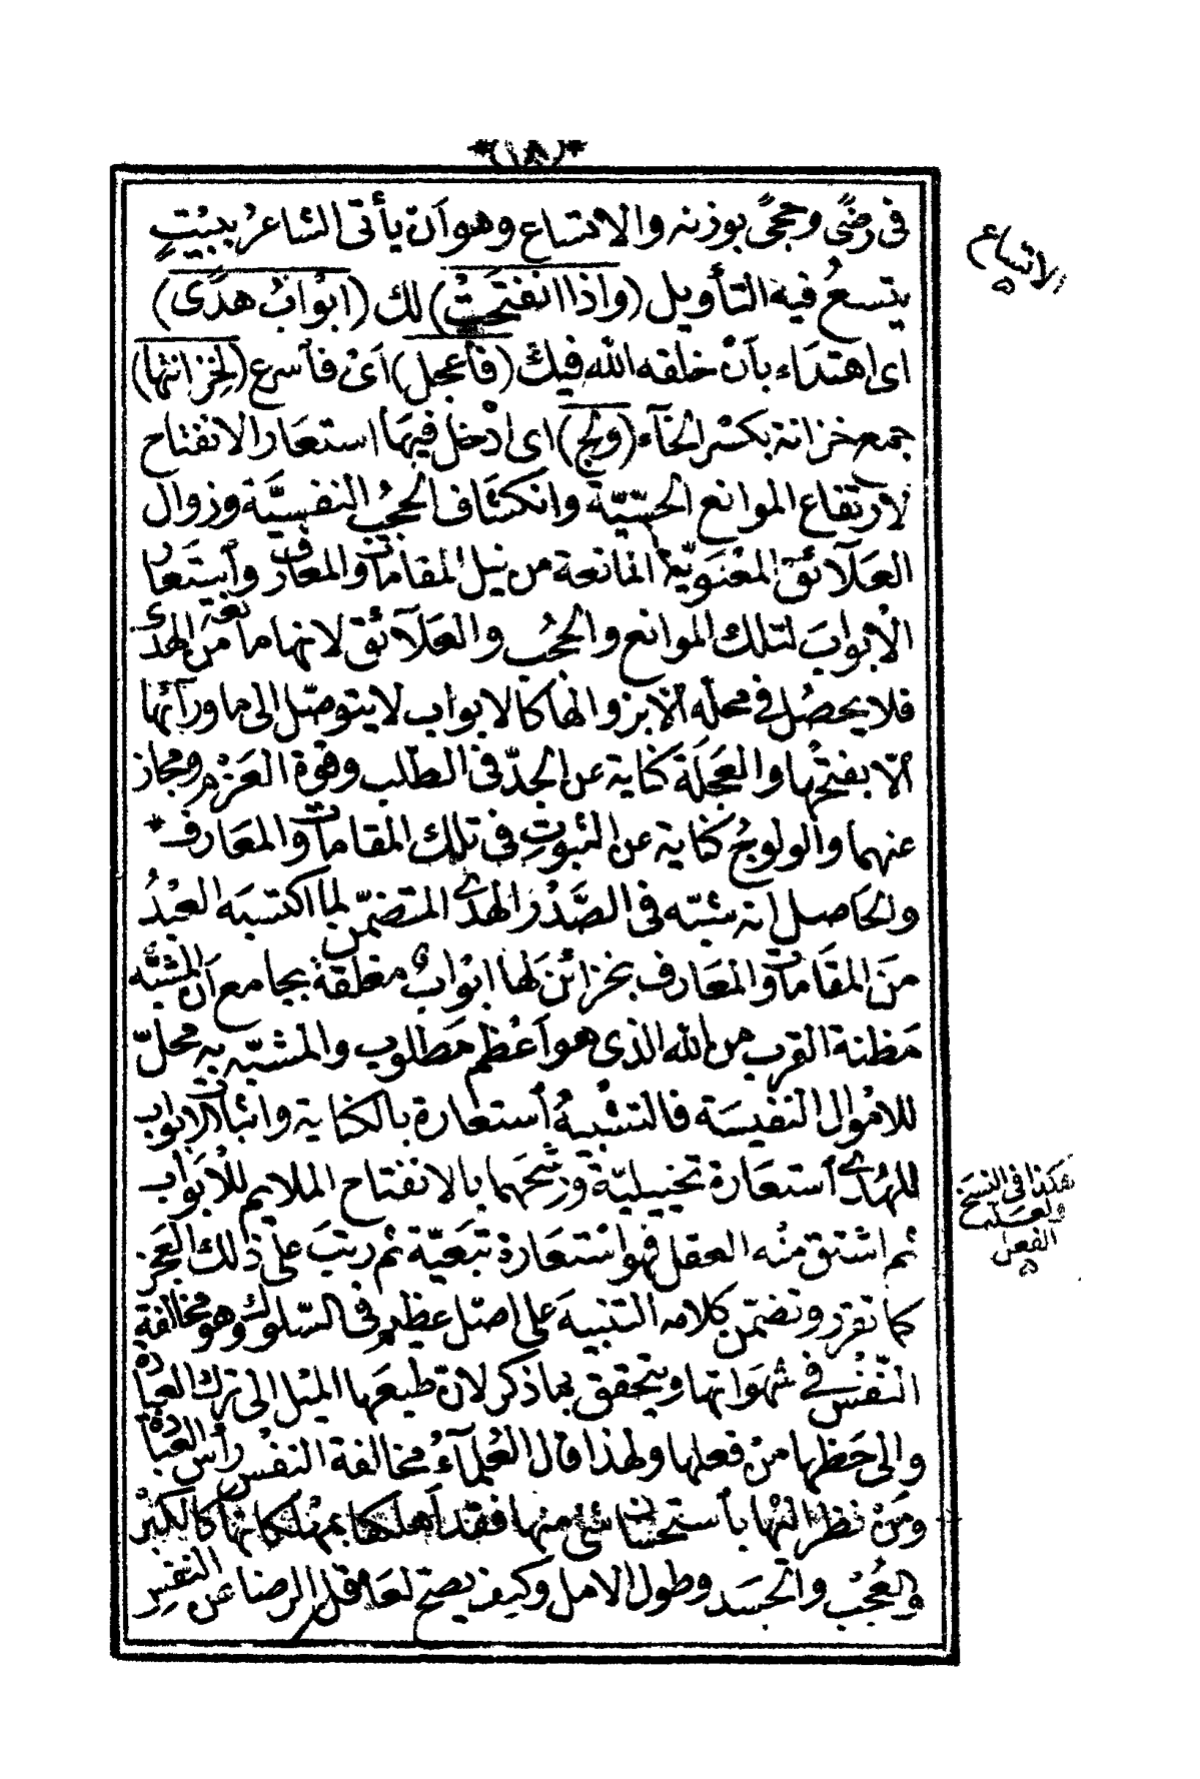 *(١٨)*
فى رضًى وحجًى بوزنه والاتساع وهو آن يأتى الشاعرُ ببيْتٍ
الاتساع
يتسعُ فيه التأويل (واذا انفتحَتْ) لك (ابْوابُ هدًى)
اى اهتدَاء بآنْ خلقه الله فيك (فأعجل) اَىْ فأسرع (لِخزائنها)
جمع خزانة بكسْر الخآء (ولِج) اى اُدْخل فيهَا استعَار الانفتاح
لارتقاع الموانع الحسِّيّة وانكشاف الحجُب النفسيَّة وزوال
العلَآئق المعْنَويّة المانعة من نيل المقامات والمعارف وأستعَار
الْابْوابَ لتلك الموانع والحُجُب والعلَآئق لانها مانعة من الهدٰى
فلا يحصُل فى محلّه الا بزوالها كالابواب لا يتوصّل الى ماورآئها
الّا بفتْحها والعَجلَة كناية عن الجدّ فى الطّلب وقوة العَزْم ومجاز
عنهما والولوجُ كناية عن الثبوتِ فى تلك المقامات والمعَارف *
والحَاصل انه شبّه فى الصَّدْر الهدٰى المتضمّن لما اكتسبَه العبْدُ
منَ المقَامات والمعَارف بخزائنَ لَها ابْوابٌ مغلقة بجامع اَن المشبَّه
مَظنة القرب من الله الذى هو اَعْظم مَطلوب والمشبّه به محلّ
للامْوال النفيسَة فالتشْبيهُ أستعارة بالكناية واثبات الابواب
للهدٰى أستعَارة تخييليّة ورشّحَهما بالانفتاح الملايم للْابَوابِ
هكذا فى النسخ
ولعله
الفعل
ثم اشتق منْه العقل فهو اسْتعَارة تبَعيّة ثم رتبَ على ذلك العَجز
كما تقرر وتضمّن كلامه التنبيهَ على اصْل عظيم فى السّلوك وهو مخالفة
النّفْس فى شهوَاتها ويتحقق بما ذكر لانّ طبعَها الميْل الى ترك العبادة
والى حَظها منْ فعلها ولهذا قال العُلمآءُ مخالفة النفسْ رأس العبادة
ومَنْ نظر اليْها بأستحسَان شئ منها فقد اَهلكها بمهْلكاتها كالكبْر
والعُجْب والحسَد وطول الامل وكيف يصح لعَاقل الرضا عن النفْسِ